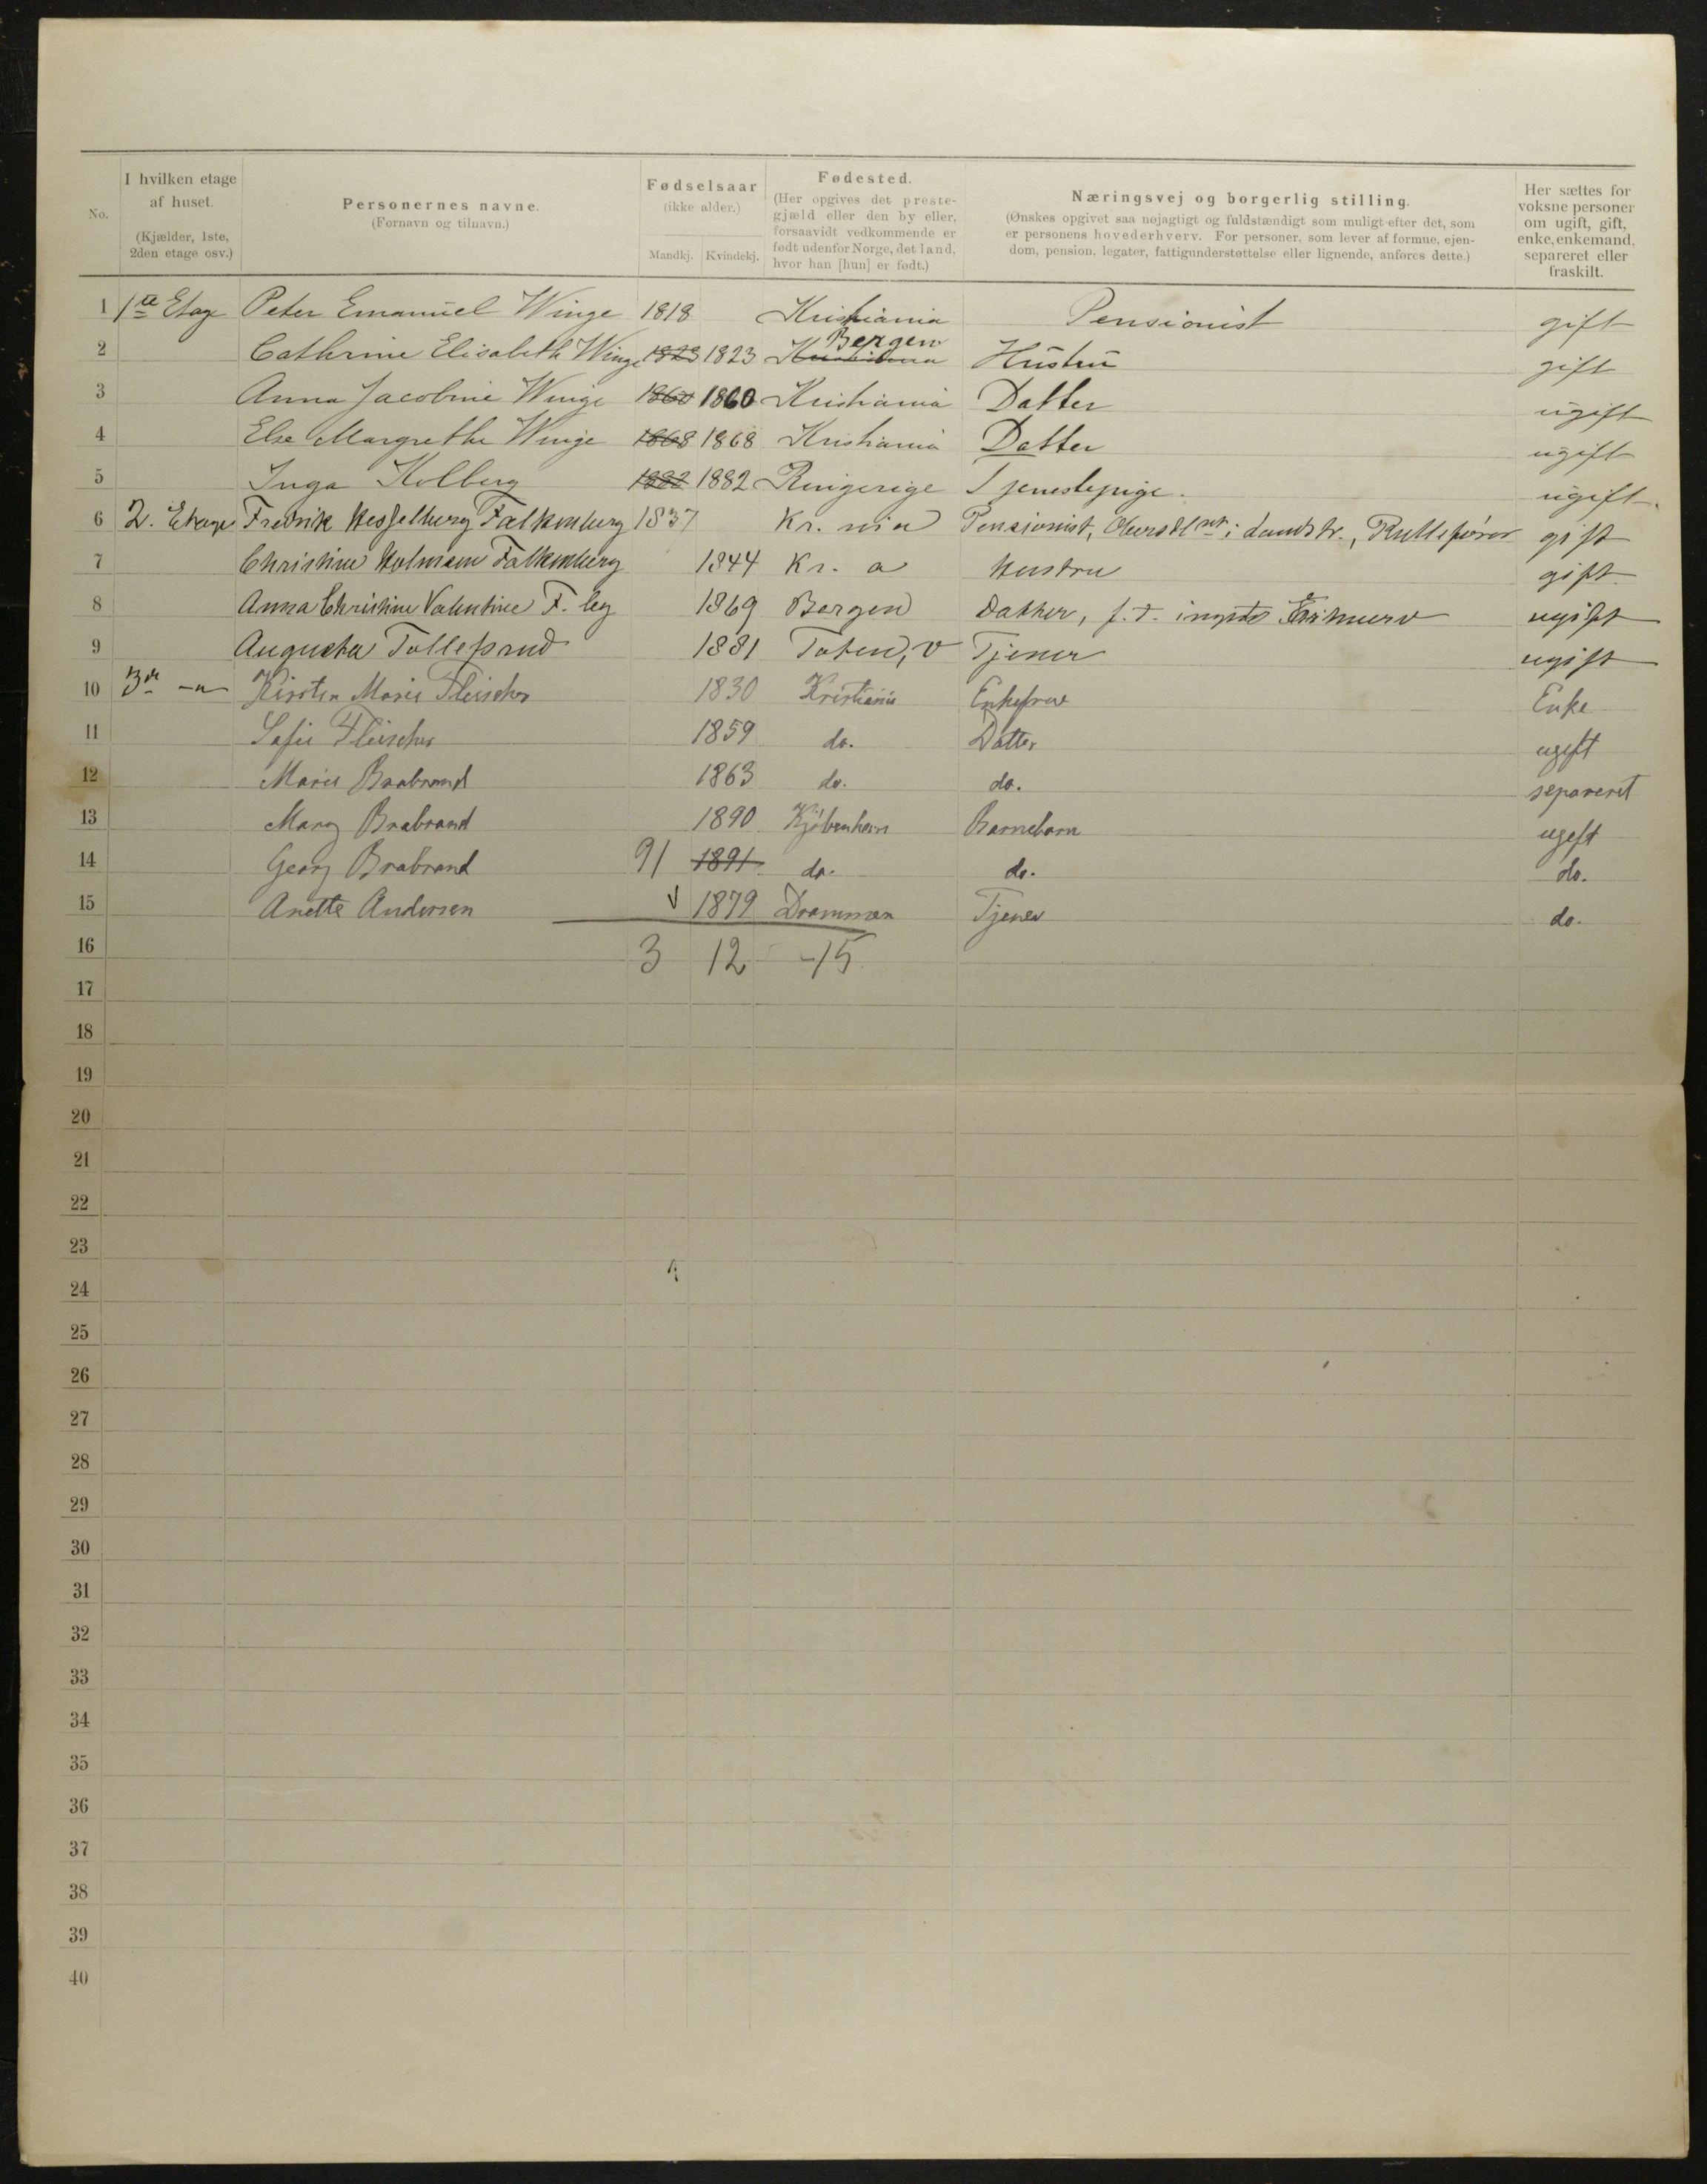 No.
I hvilken etage af huset. (Kjælder, 1ste, 2den etage osv.)
Personernes navne. (Fornavn og tilnavn.)
Fødselsaar (ikke alder.) Mandkj. Kvindekj.
Fødested. (Her opgives det prestegjæld eller den by eller, forsaavidt vedkommende er født udenfor Norge, det land, hvor han [hun] er født.)
Næringsvej og borgerlig stilling. (Ønskes opgivet saa nøjagtigt og fuldstændigt som muligt efter det, som er personens hovederhverv. For personer, som lever af formue, ejendom, pension, legater, fattigunderstøttelse eller lignende, anføres dette.)
Her sættes for voksne personer om ugift, gift, enke, enkemand, separeret eller fraskilt.
1 1ste Etage Peter Emanuel Winge 1818 Kristiania Pensionist gift
2 Cathrine Elisabeth Winge 1823 1823 Kristiania Bergen Hustru gift
3 Anna Jacobine Winge 1860 1860 Kristiania Datter ugift
4 Else Margrethe Winge 1868 1868 Kristiania Datter ugift
5 Inga Kolberg 1882 1882 Ringerige Tjenestepige. ugift.
6 2. Etage Fredrik Hesselberg Falkenberg 1837 Kr. nia Pensjonist, Oberstltnt i landstr., Rullefører gift
7 Christine Holmsen Falkenberg 1844 Kr. a Hustru gift
8 Anna Christine Valentine F. beg 1869 Bergen Datter, f. t. ugift
9 Augusta Tollefsrud 1881 Toten, V Tjener ugift
10 3de -"- Kirsten Marie Fleischer 1830 Kristiania Enkefrue Enke
11 Sofie Fleischer 1859 do. Datter ugift
12 Marie Brabrand 1863 do. do. separeret
13 Mary Brabrand 1890 Kjøbenhavn Barnebarn ugift
14 Georg Brabrand 91 1891 do. do. do.
15 Anette Andersen 1879 Drammen Tjener do.
16 3 12 -15
17
18
19
20
21
22
23
24
25
26
27
28
29
30
31
32
33
34
35
36
37
38
39
40